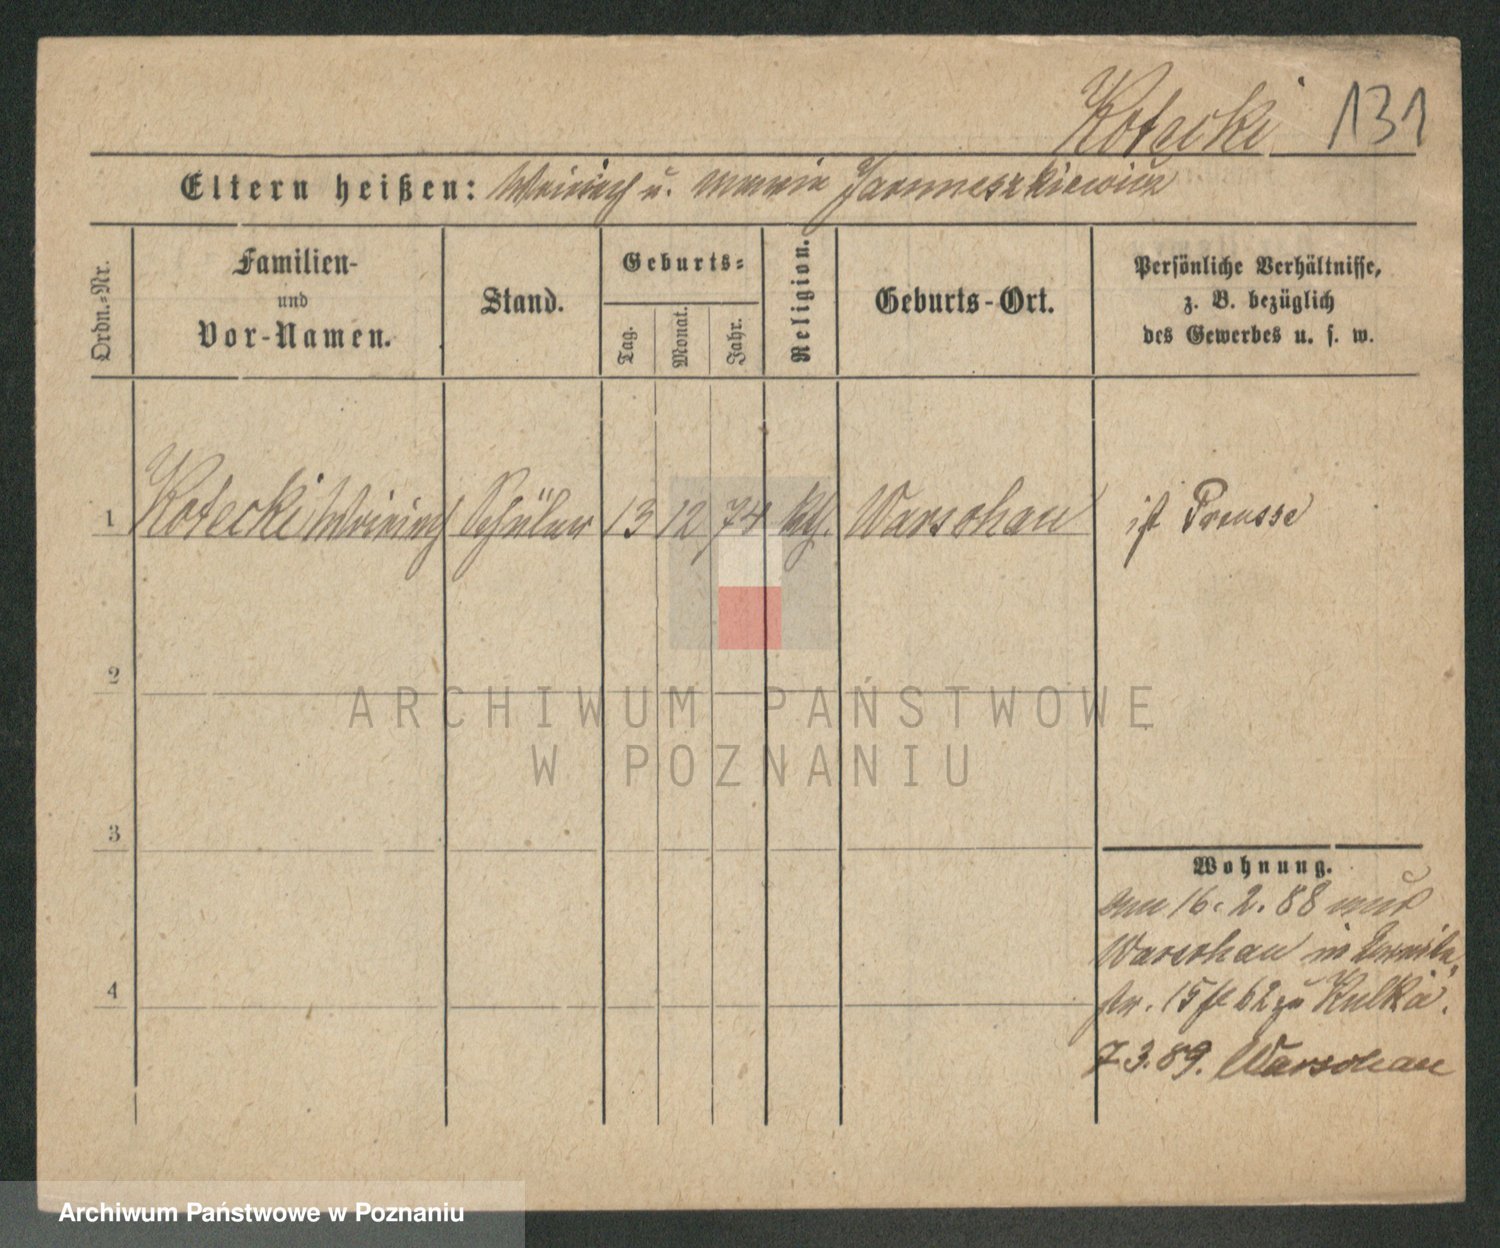 Kotecki 131
Eltern heißen: u. Maria
Ordn.-Nr.
Familien-
und
Vor-Namen.
Stand.
Geburts-
Tag.
Monat.
Jahr.
Religion.
Geburts-Ort.
Persönliche Verhältnisse,
z. B. bezüglich
des Gewerbes u. s. w.
1 Kotecki Schüler 13 12 74 kth. Warschau ist Preusse
2
3
4
Wohnung.
am 16. 2. 88 aus
Warschau in
str. 15 zu Kulka.
7.3.89. Warschau
ARCHIWUM PAŃSTWOWE
W POZNANIU
Archiwum Państwowe w Poznaniu